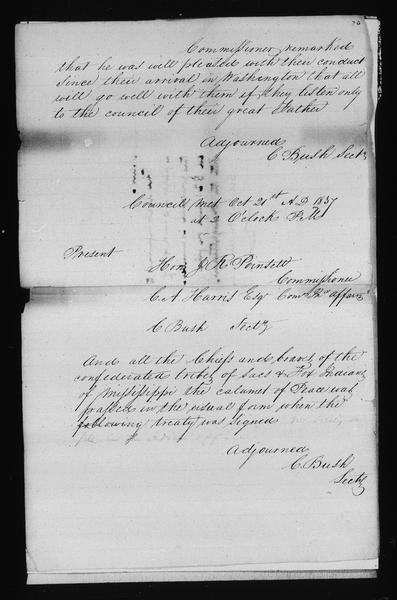 Commissioner remarked
that he was will pleased with their conduct
since their arrival in Washington that all
will go well with them if they listen only
to the council of their great Father
Adjourned
C Bush Secty
Council met Oct 21st A D 1837
at 2 O'clock P.M
Present
Hon J R Poinsett
Commissioner
C. A Harris Esqr Comr In affairs
C Bush Secty
And all the Chiefs and braves of the
confederated tribes of Sacs & Fox Indians
of Mississippi the calumet of Peace was
passed in the usual form when the
following treaty was signed
Adjourned
C. Bush
Secty